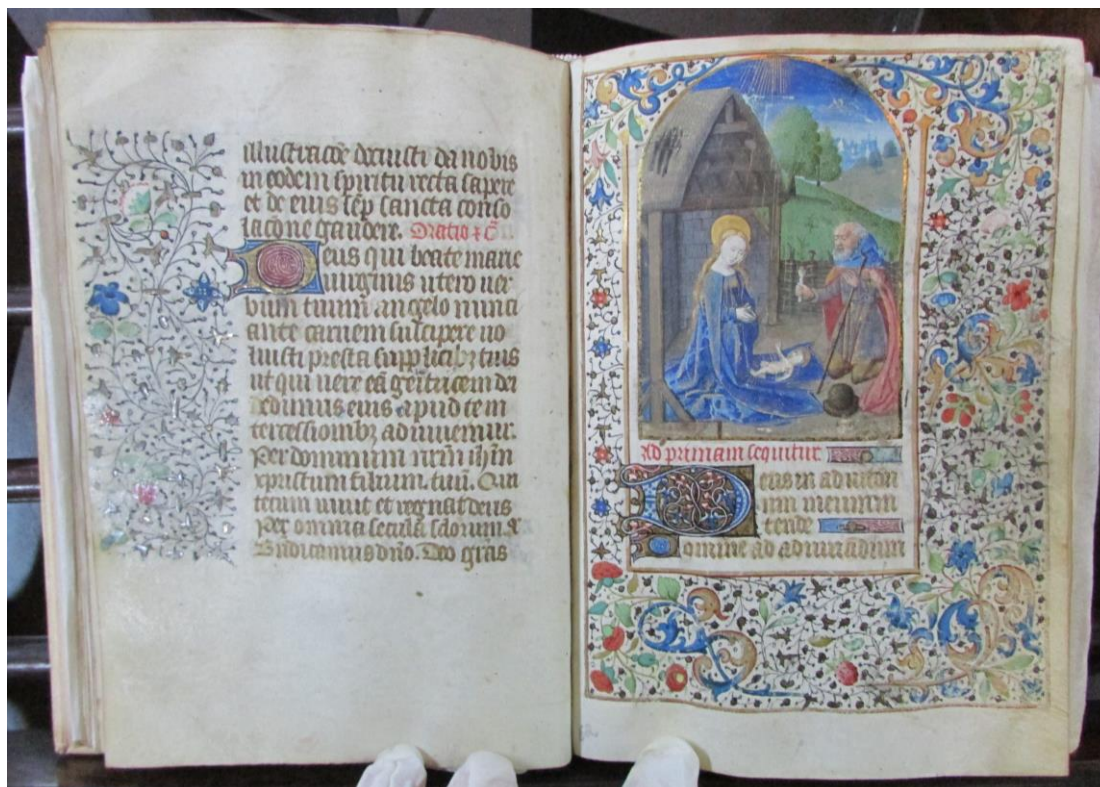 illustracõe docuisti da nobis
in eodem spiritu recta sapere
et de eius sẽp sancta conso
lacõne gaudere. Oratio
Deus qui beate marie
virginis utero ver
bum tuum angelo nunci
ante carnem suscipere vo
luisti presta supplicibz tuis
ut qui vere eã genitricem dei
credimus eius apud te in
tercessionibz adiuvemur.
Per dominum nrm ihm
xpristum filium tuũ. Qui
tecum vivit et regnat deus
Per omnia secula sclorum
Bndicamus dño. Deo gras
Ad primam sequitur
Deus in adiutori
um meum in
tende
Domine ad adiuvandum